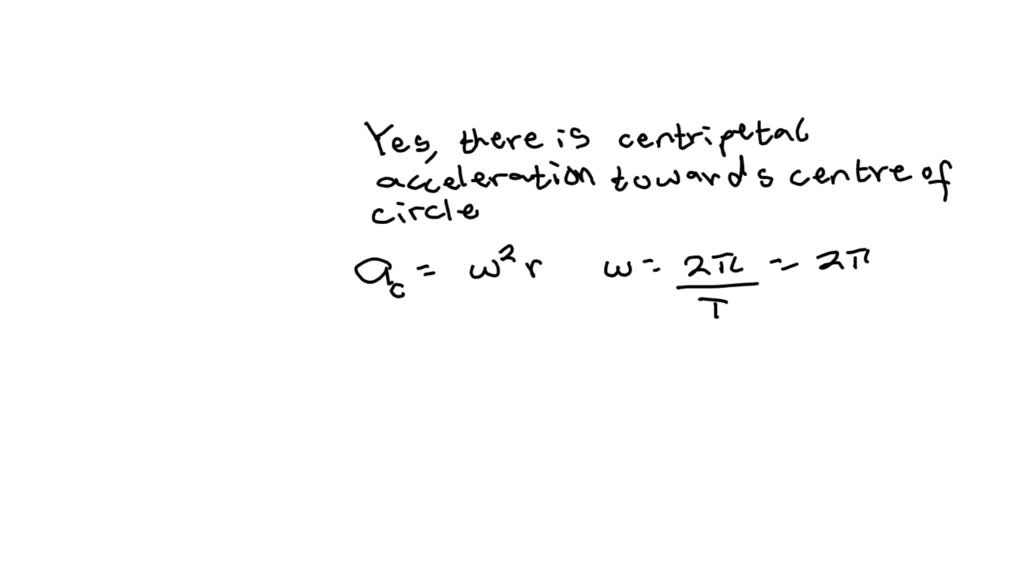 Yes, there is centripetal
acceleration towards centre of
circle
a_c = ω² r   ω = 2π/T = 2π